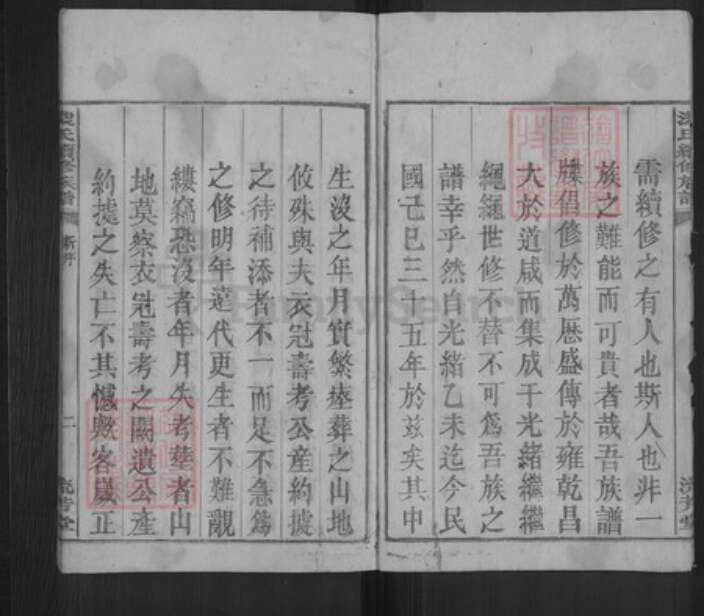 需續修之有人也斯人也非一
族之難能而可貴者哉吾族譜
牒倡修於萬厯盛傳於雍乾昌
大於道咸而集成于光緒繼繼
繩繩世修不替不可為吾族之
譜幸乎然自光緒乙未迄今民
國己巳三十五年於兹矣其中
生沒之年月實繁瘞葬之山地
攸殊與夫衣冠壽考公產約據
之待補添者不一而足不急為
之修明年遠代更生者不難覼
縷竊恐沒者年月失考塋者山
地莫察衣冠壽考之闕遺公產
約據之失亡不其憾歟客歲正
氏續修族譜
新序
二
流芳堂
FamilySearch